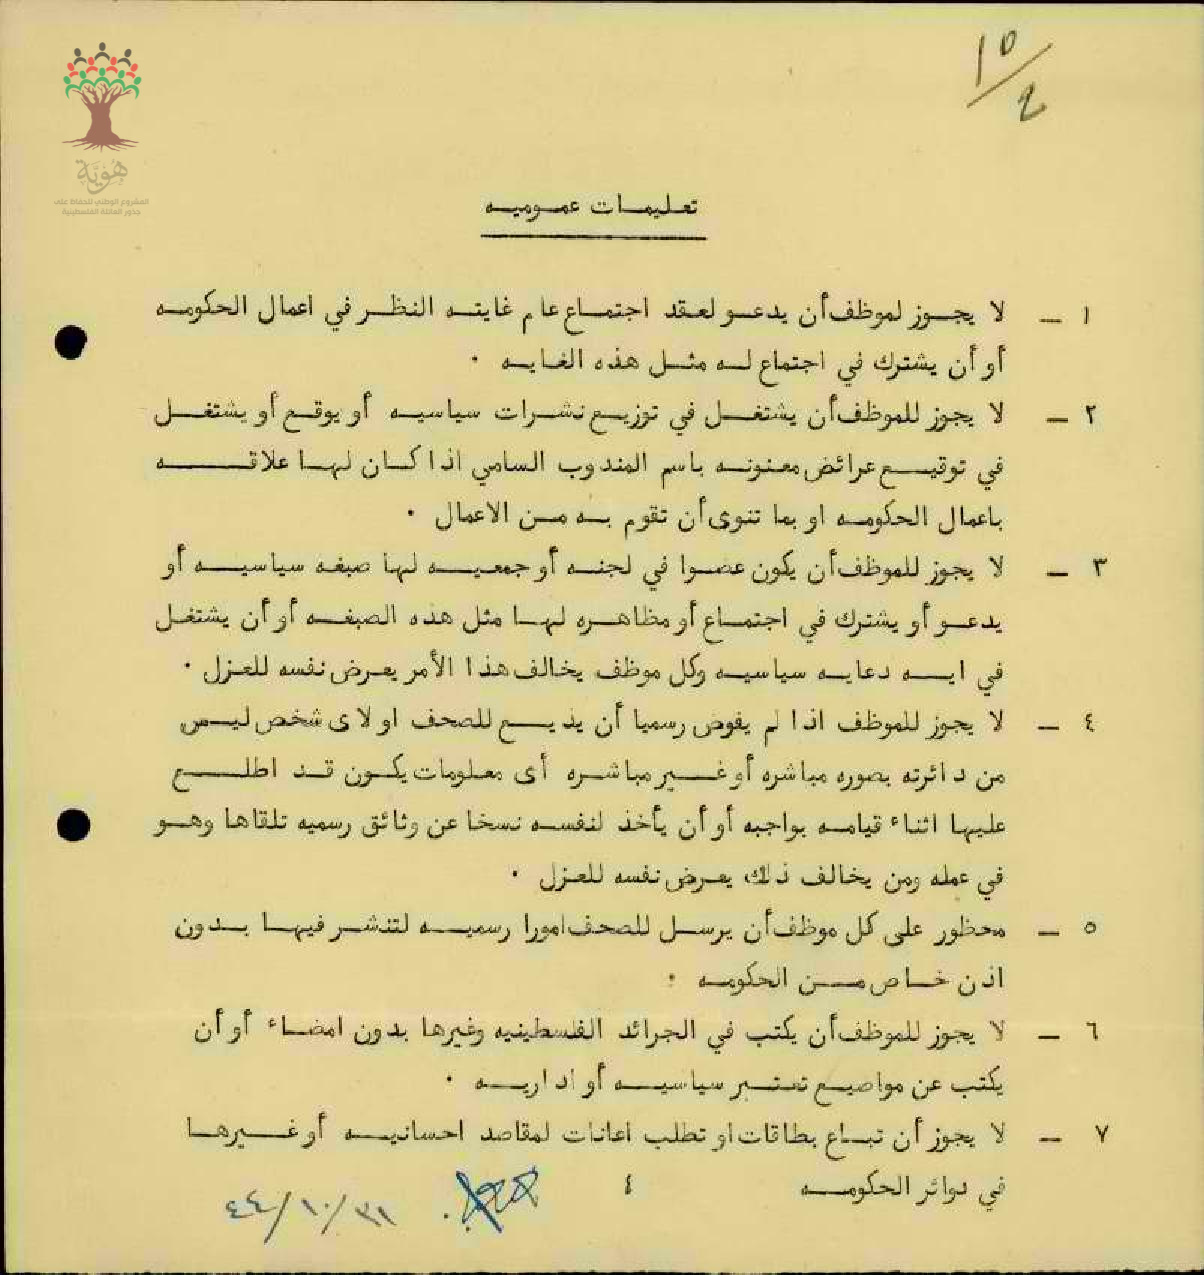 ١٥/٤
هُوِيَّة
المشروع الوطني للحفاظ على
جذور العائلة الفلسطينية
تعليمات عموميه
١ – لا يجوز لموظف أن يدعو لعقد اجتماع عام غايته النظر في اعمال الحكومه
أو أن يشترك في اجتماع له مثل هذه الغايه ٠
٢ – لا يجوز للموظف أن يشتغل في توزيع نشرات سياسيه أو يوقع أو يشتغل
في توقيع عرائض معنونه باسم المندوب السامي اذا كان لها علاقه
باعمال الحكومه او بما تنوى أن تقوم به من الاعمال ٠
٣ – لا يجوز للموظف أن يكون عضوا في لجنه أو جمعيه لها صبغه سياسيه أو
يدعو أو يشترك في اجتماع أو مظاهره لها مثل هذه الصبغه أو أن يشتغل
في ايه دعايه سياسيه وكل موظف يخالف هذا الأمر يعرض نفسه للعزل ٠
٤ – لا يجوز للموظف اذا لم يفوض رسميا أن يذيع للصحف او لاى شخص ليس
من دائرته بصوره مباشره أو غير مباشره أى معلومات يكون قد اطلع
عليها اثناء قيامه بواجبه أو أن يأخذ لنفسه نسخا عن وثائق رسميه تلقاها وهو
في عمله ومن يخالف ذلك يعرض نفسه للعزل ٠
٥ – محظور على كل موظف أن يرسل للصحف امورا رسميه لتنشر فيها بدون
اذن خاص من الحكومه ٠
٦ – لا يجوز للموظف أن يكتب في الجرائد الفلسطينيه وغيرها بدون امضاء أو أن
يكتب عن مواضيع تعتبر سياسيه أو اداريه ٠
٧ – لا يجوز أن تباع بطاقات او تطلب اعانات لمقاصد احسانيه أو غيرها
في دوائر الحكومه ٤
٣١/١٠/٤٤